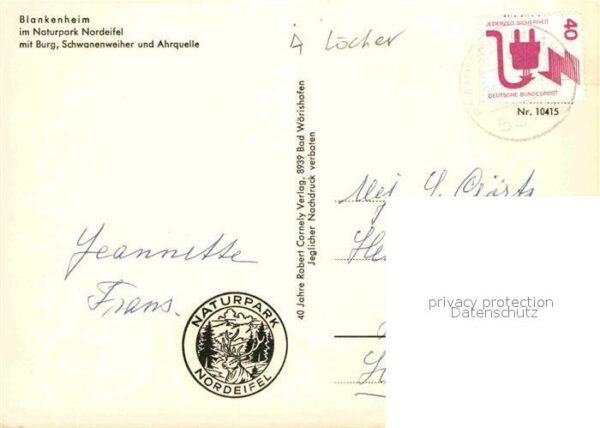 Blankenheim
im Naturpark Nordeifel
mit Burg, Schwanenweiher und Ahrquelle
4 Löcher
JEDERZEIT SICHERHEIT
40
DEUTSCHE BUNDESPOST
Nr. 10415
40 Jahre Robert Cornely Verlag, 8939 Bad Wörishofen
Jeglicher Nachdruck verboten
Jeannette
Frans.
NATURPARK
NORDEIFEL
privacy protection
Datenschutz